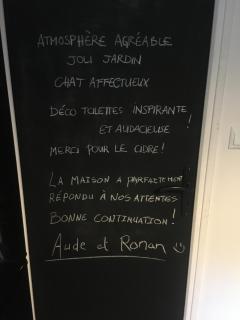 ATMOSPHÈRE AGRÉABLE
JOLI JARDIN
CHAT AFFECTUEUX
DÉCO TOILETTES INSPIRANTE
ET AUDACIEUSE !
MERCI POUR LE CIDRE !
LA MAISON A PARFAITEMENT
RÉPONDU À NOS ATTENTES
BONNE CONTINUATION !
Aude et Ronan